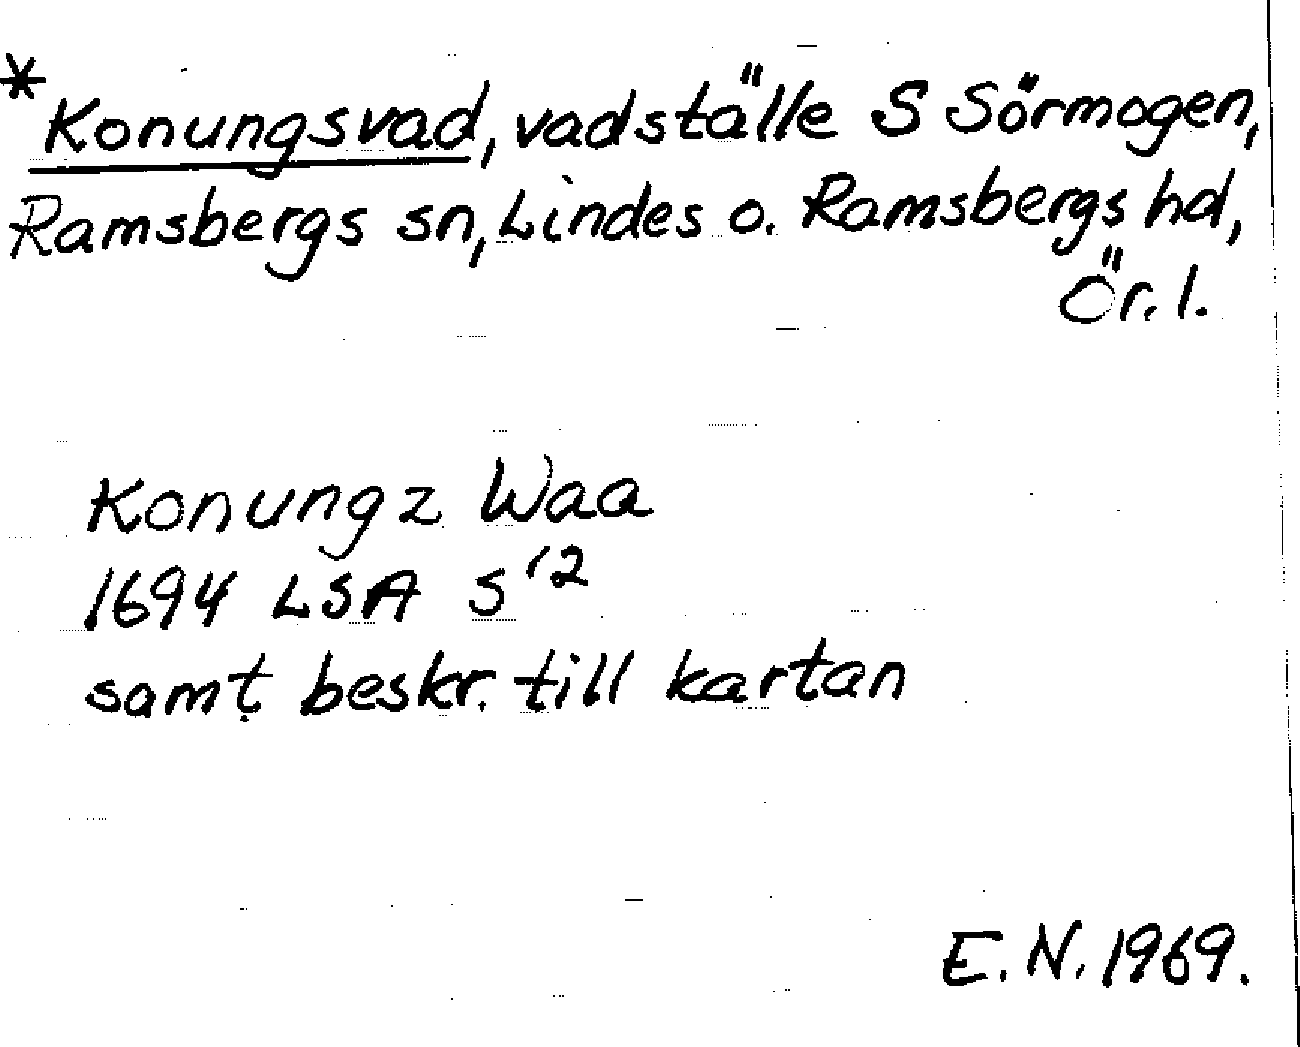 *Konungsvad, vadställe S Sörmogen,
Ramsbergs sn, Lindes o. Ramsbergs hd,
Ör. l.
Konungz Waa
1694 LSA S'2
samt beskr. till kartan
E. N. 1969.